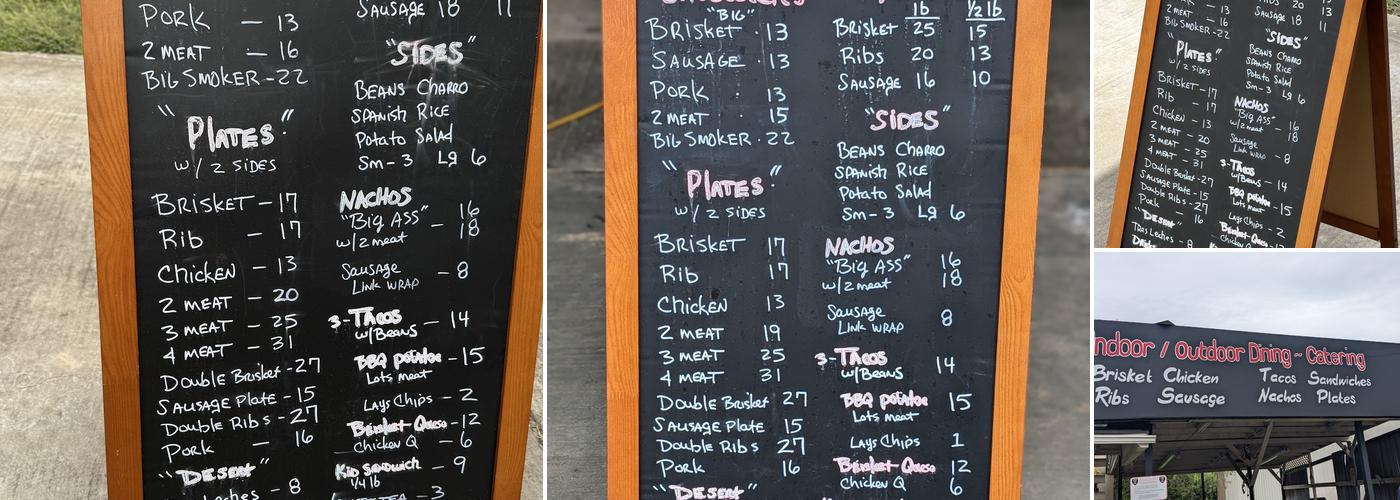 PORK — 13
2 MEAT — 16
BIG SMOKER - 22
"PLATES"
w/ 2 SIDES
BRISKET - 17
Rib - 17
Chicken - 13
2 MEAT - 20
3 MEAT - 25
4 MEAT - 31
Double Brisket - 27
SAUSAGE PLATE - 15
Double Ribs - 27
Pork — 16
"DESERT"
Leches - 8
SAUSAGE 18 11
"SIDES"
BEANS CHARRO
SPANISH RICE
Potato Salad
Sm - 3 Lg 6
NACHOS
"Big Ass" 16
w/2 meat - 18
Sausage
Link WRAP - 8
3-TACOS
w/Beans - 14
BBQ potatoe - 15
Lots meat
LAYS Chips - 2
Brisket Queso - 12
Chicken Q - 6
Kid Sandwich - 9
1/4 lb
TEA - 3
"BIG"
BRISKET · 13
SAUSAGE · 13
PORK : 13
2 MEAT 15
BIG SMOKER · 22
"PLATES"
w/ 2 SIDES
BRISKET 17
Rib 17
Chicken 13
2 MEAT 19
3 MEAT 25
4 MEAT 31
Double Brisket 27
SAUSAGE PLATE 15
Double Ribs 27
Pork 16
"DESERT"
lb 1/2 lb
Brisket 25 15
Ribs 20 13
Sausage 16 10
"SIDES"
BEANS CHARRO
SPANISH RICE
Potato Salad
Sm - 3 Lg 6
NACHOS
"Big Ass" 16
w/2 meat 18
Sausage
Link WRAP 8
3-TACOS
w/Beans 14
BBQ potatoe 15
Lots meat
LAYS Chips 1
Brisket Queso 12
Chicken Q 6
PORK - 13
2 MEAT - 16
BIG SMOKER - 22
"PLATES"
w/ 2 SIDES
BRISKET - 17
Rib - 17
Chicken - 13
2 MEAT - 20
3 MEAT - 25
4 MEAT - 31
Double Brisket - 27
Sausage Plate - 15
Double Ribs - 27
Pork - 16
"DESERT"
Tres Leches - 8
Ribs 20 13
Sausage 18 11
"SIDES"
BEANS CHARRO
SPANISH RICE
Potato Salad
Sm - 3 Lg 6
NACHOS
"Big Ass" - 16
w/2 meat 18
Sausage
Link WRAP - 8
3-TACOS
w/Beans - 14
BBQ potatoe - 15
Lots meat
Lays Chips - 2
Brisket Queso - 12
Chicken Q
ndoor / Outdoor Dining ~ Catering
Brisket Chicken Tacos Sandwiches
Ribs Sausage Nachos Plates